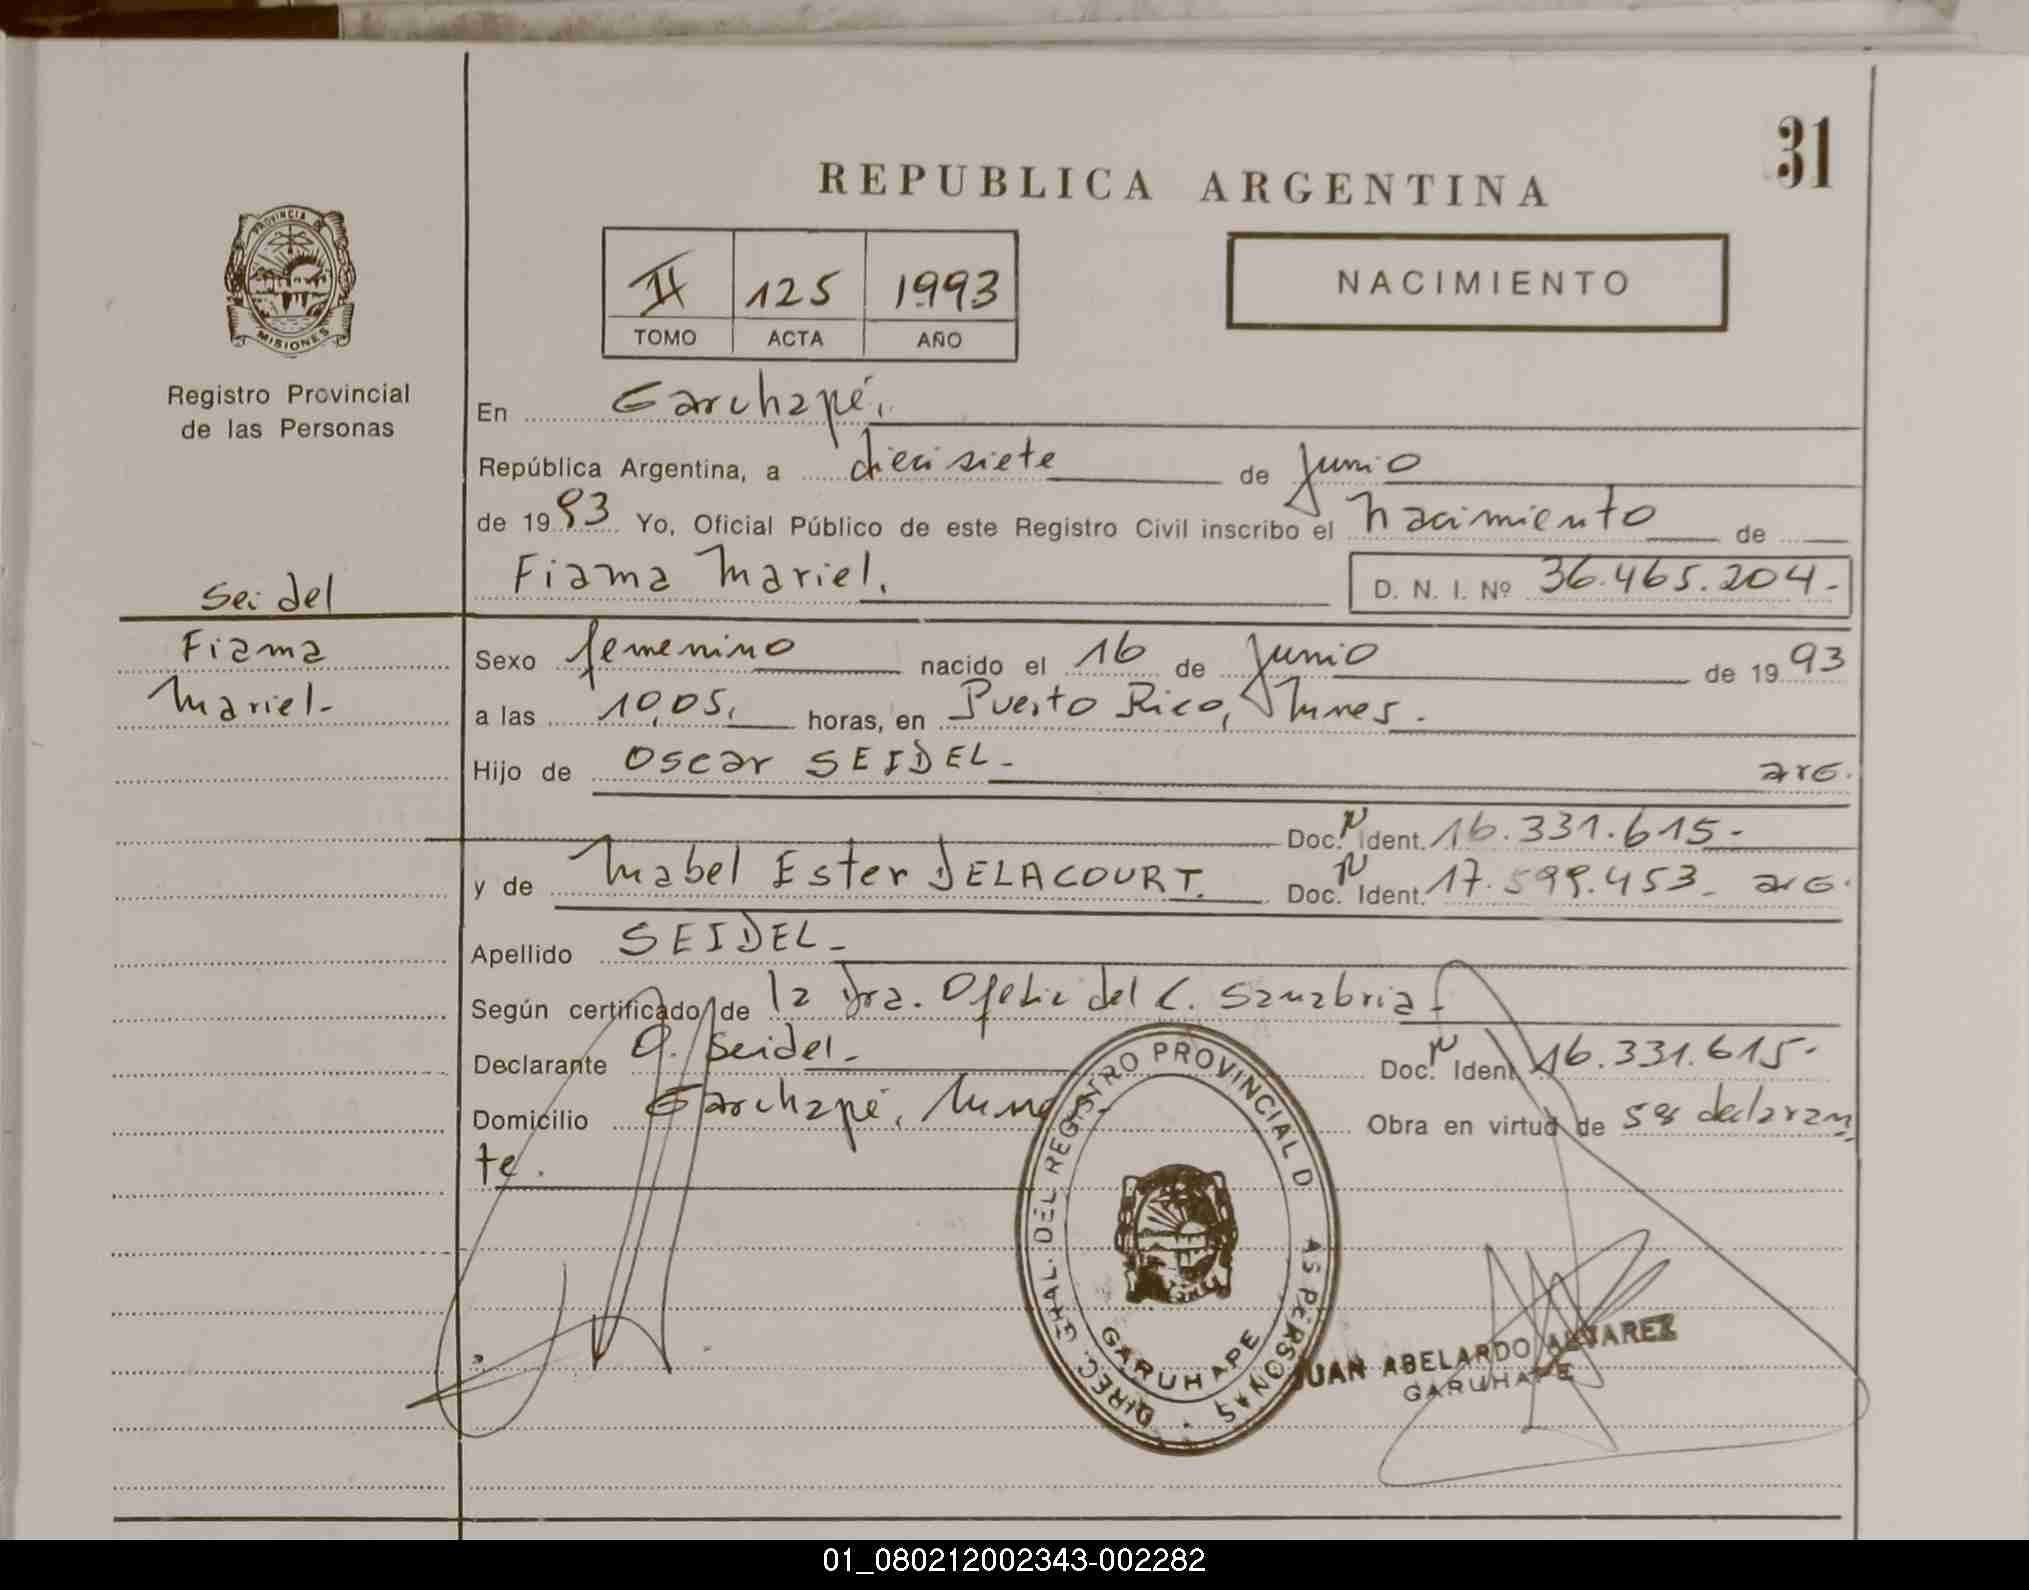 31
REPUBLICA ARGENTINA
PROVINCIA DE
MISIONES
II 125 1993
TOMO ACTA AÑO
NACIMIENTO
Registro Provincial
de las Personas
En Garuhapé,
República Argentina, a diecisiete de Junio
de 1993 Yo, Oficial Público de este Registro Civil inscribo el Nacimiento de
Fiama Mariel. D. N. I. Nº 36.465.204.-
Seidel
Fiama
Mariel.-
Sexo femenino nacido el 16 de Junio de 1993
a las 10,05, horas, en Puerto Rico, Mnes.
Hijo de Oscar SEIDEL.- arg.
Doc. N Ident. 16.331.615.-
y de Mabel Ester DELACOURT. Doc. N Ident. 17.599.453.- arg.
Apellido SEIDEL.-
Según certificado de la Dra. Ofelia del C. Sanabria
Declarante O. Seidel.- Doc. N Ident. 16.331.615.-
Domicilio Garuhapé, Mnes. Obra en virtud de ser declaran
te.
DIREC. GRAL. DEL REGISTRO PROVINCIAL D AS PERSONAS
GARUHAPE
JUAN ABELARDO ALVAREZ
GARUHAPE
01_080212002343-002282